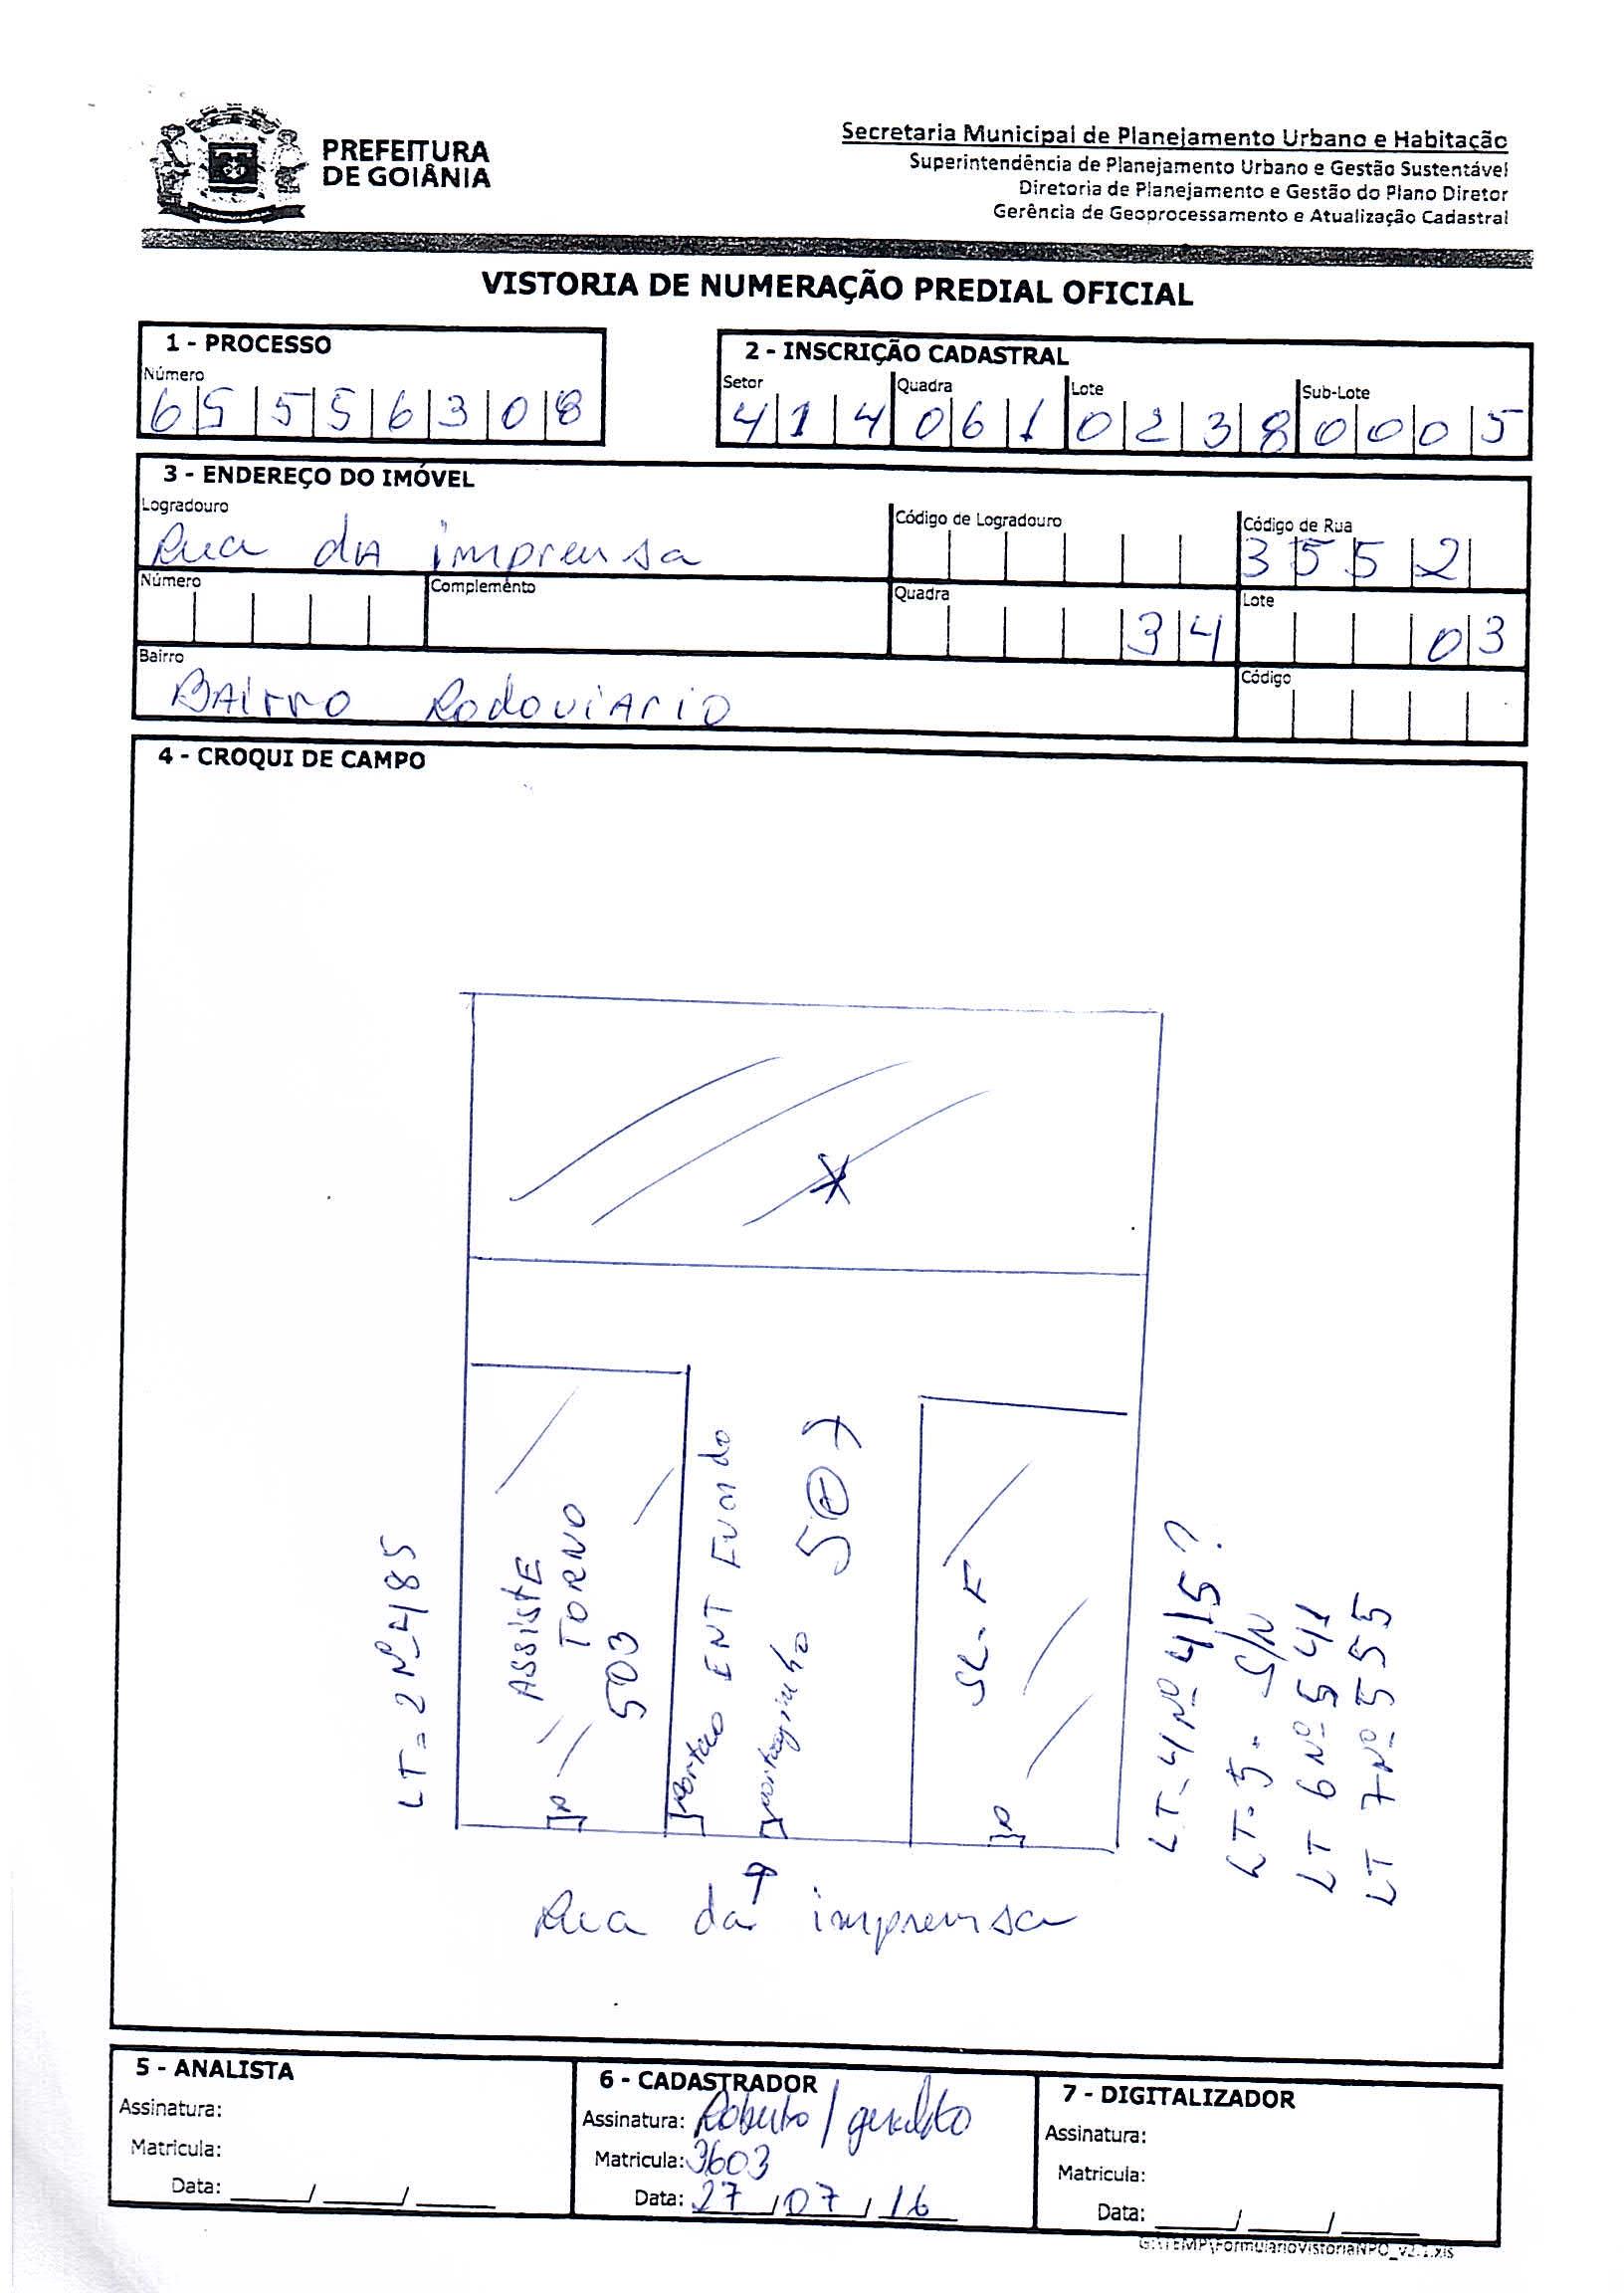 PREFEITURA
DE GOIÂNIA
Secretaria Municipal de Planejamento Urbano e Habitação
Superintendência de Planejamento Urbano e Gestão Sustentável
Diretoria de Planejamento e Gestão do Plano Diretor
Gerência de Geoprocessamento e Atualização Cadastral
VISTORIA DE NUMERAÇÃO PREDIAL OFICIAL
1 - PROCESSO
Número
65556308
2 - INSCRIÇÃO CADASTRAL
Setor Quadra Lote Sub-Lote
414 061 0238 0005
3 - ENDEREÇO DO IMÓVEL
Logradouro Código de Logradouro Código de Rua
Rua da imprensa 3552
Número Complemento Quadra Lote
34 03
Bairro Código
BAirro RodoviArio
4 - CROQUI DE CAMPO
LT=2 Nº 485
AssistE
TORNO
503
portão ENT Fundo
portãozinho 507
SL-F
LT-4 Nº 415?
LT-5- S/N
LT 6 Nº 541
LT 7 Nº 555
Rua da imprensa
5 - ANALISTA
Assinatura:
Matricula:
Data: ___/___/___
6 - CADASTRADOR
Assinatura: Roberto / geraldo
Matricula: 3603
Data: 27/07/16
7 - DIGITALIZADOR
Assinatura:
Matricula:
Data: ___/___/___
G:\TEMP\FormularioVistoriaNPO_v2.1.xls